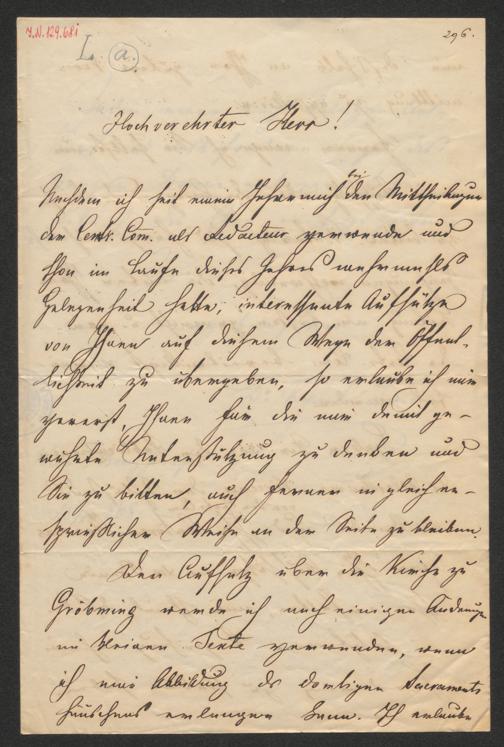 I.N. 129.681
L a.
296.
Hochverehrter Herr!
Nachdem ich seit einem Jahr mich bei den Mittheilungen
der Centr. Com. als Redacteur verwende und
schon im Laufe dieses Jahres mehrmals
Gelegenheit hatte, interessante Aufsätze
von Ihnen auf diesem Wege der Öffent-
lichkeit zu übergeben, so erlaube ich mir
vorerst, Ihnen für die mir damit ge-
währte Unterstützung zu danken und
Sie zu bitten, auch ferner in gleich er-
sprießlicher Weise an der Seite zu bleiben.
Den Aufsatz über die Kirche zu
Gröbming werde ich nach einigen
im Texte verwenden, wenn
ich eine Abbildung des dortigen Sacraments
häuschens erlangen kann. Ich erlaube